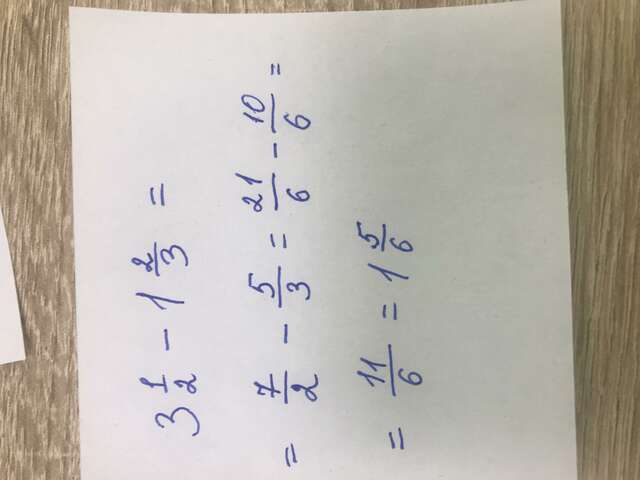 3 1/2 - 1 2/3 =
= 7/2 - 5/3 = 21/6 - 10/6 =
= 11/6 = 1 5/6